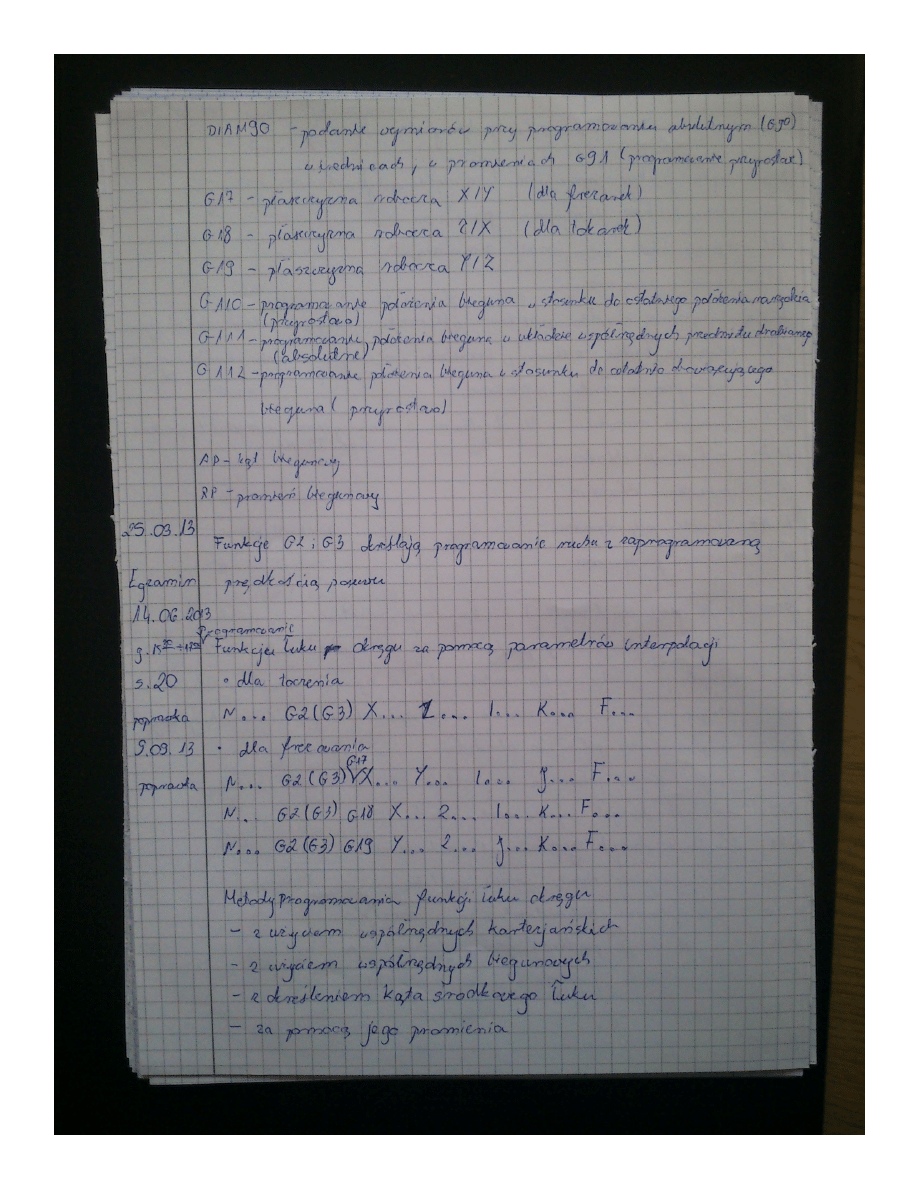 DIAM90 - podanie wymiarów przy programowaniu absolutnym (G90)
w średnicach, w promieniach G91 (programowanie przyrostowe)
G17 - płaszczyzna robocza X/Y (dla frezarek)
G18 - płaszczyzna robocza Z/X (dla tokarek)
G19 - płaszczyzna robocza Y/Z
G110 - programowanie położenia bieguna w stosunku do ostatniego położenia narzędzia
(przyrostowo)
G111 - programowanie położenia bieguna w układzie współrzędnych przedmiotu obrabianego
(absolutne)
G112 - programowanie położenia bieguna w stosunku do ostatnio obowiązującego
bieguna (przyrostowo)
AP - kąt biegunowy
RP - promień biegunowy
25.03.13
Funkcje G2 i G3 określają programowanie ruchu z zaprogramowaną
Egzamin prędkością posuwu
14.06.2013
Programowanie
g. Funkcja łuku okręgu za pomocą parametrów interpolacji
s.20 • dla toczenia
poprawka N... G2(G3) X... Z... I... K... F...
9.09.13 • dla frezowania
G17
poprawka N... G2(G3) X... Y... I... J... F...
N... G2(G3) G18 X... Z... I... K... F...
N... G2(G3) G19 Y... Z... J... K... F...
Metody programowania funkcji łuku okręgu
- z użyciem współrzędnych karterjańskich
- z użyciem współrzędnych biegunowych
- z określeniem kąta środkowego łuku
- za pomocą jego promienia